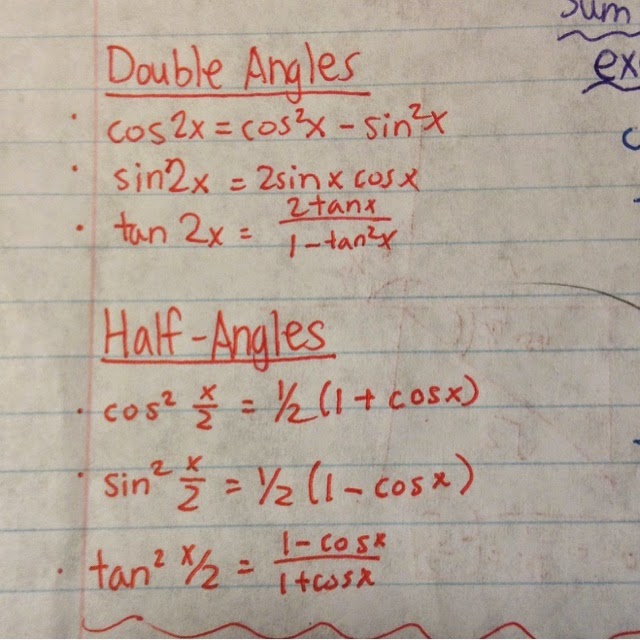 Sum
Double Angles
• cos2x = cos²x - sin²x
• sin2x = 2sinx cosx
• tan 2x = 2tanx / 1-tan²x
Half-Angles
• cos² x/2 = 1/2 (1 + cosx)
• sin² x/2 = 1/2 (1 - cosx)
• tan² x/2 = 1-cosx / 1+cosx